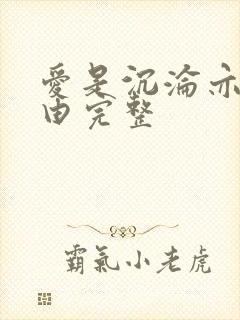 愛是沉淪亦
由完整
霸氣小老虎